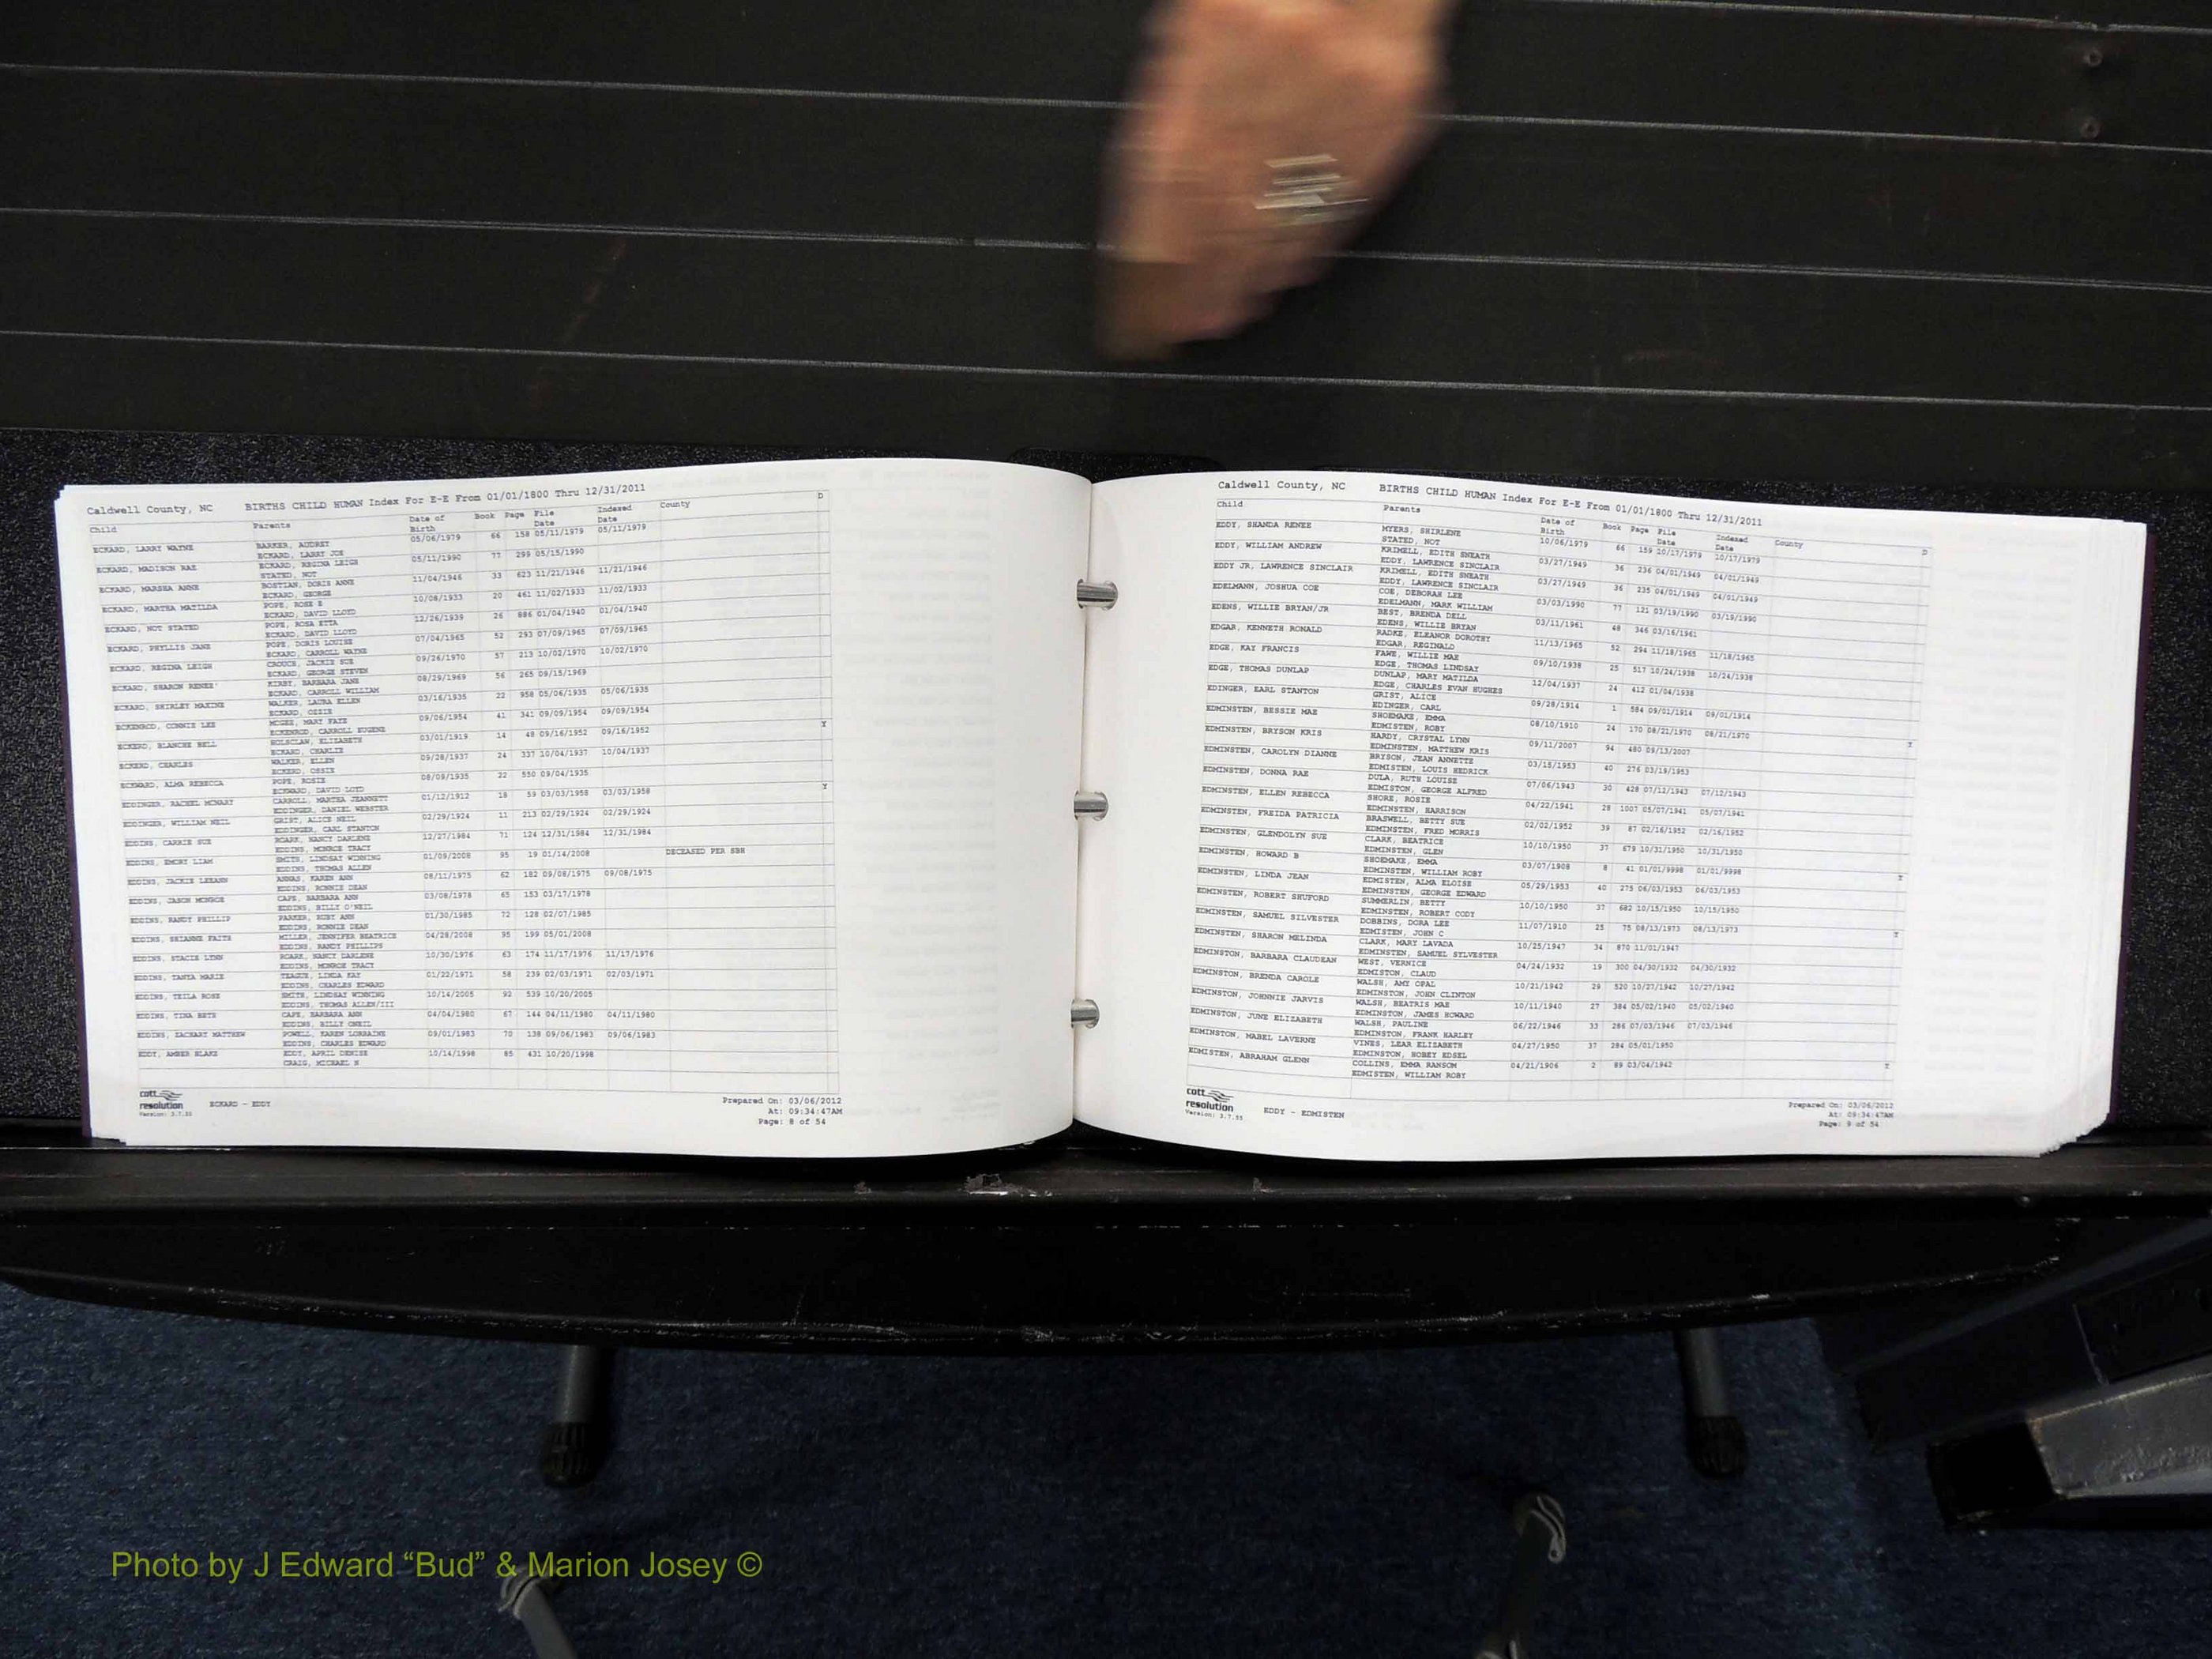 Caldwell County, NC BIRTHS CHILD HUMAN Index For E-E From 01/01/1800 Thru 12/31/2011
Child Parents Date of Birth Book Page File Date Indexed Date County D
ECKARD, LARRY WAYNE BARKER, AUDREY 05/06/1979 66 158 05/11/1979 05/11/1979
ECKARD, LARRY JOE
ECKARD, MADISON RAE ECKARD, REGINA LEIGH 05/11/1990 77 299 05/15/1990
STATED, NOT
ECKARD, MARSHA ANNE BOSTIAN, DORIS ANNE 11/04/1946 33 623 11/21/1946 11/21/1946
ECKARD, GEORGE
ECKARD, MARTHA MATILDA POPE, ROSE E 10/08/1933 20 461 11/02/1933 11/02/1933
ECKARD, DAVID LLOYD
ECKARD, NOT STATED POPE, ROSA ETTA 12/26/1939 26 886 01/04/1940 01/04/1940
ECKARD, DAVID LLOYD
ECKARD, PHYLLIS JANE POPE, DORIS LOUISE 07/04/1965 52 293 07/09/1965 07/09/1965
ECKARD, CARROLL WAYNE
ECKARD, REGINA LEIGH CROUCH, JACKIE SUE 09/26/1970 57 213 10/02/1970 10/02/1970
ECKARD, GEORGE STEVEN
ECKARD, SHARON RENEE' KIRBY, BARBARA JANE 08/29/1969 56 265 09/15/1969
ECKARD, CARROLL WILLIAM
ECKARD, SHIRLEY MAXINE WALKER, LAURA ELLEN 03/16/1935 22 958 05/06/1935 05/06/1935
ECKARD, OSSIE
ECKENROD, CONNIE LEE MCGEE, MARY FAYE 09/06/1954 41 341 09/09/1954 09/09/1954
ECKENROD, CARROLL EUGENE
ECKERD, BLANCHE BELL HOLSCLAW, ELIZABETH 03/01/1919 14 48 09/16/1952 09/16/1952 Y
ECKARD, CHARLIE
ECKERD, CHARLES WALKER, ELLEN 09/28/1937 24 337 10/04/1937 10/04/1937
ECKERD, OSSIE
ECKWARD, ALMA REBECCA POPE, ROSIE 08/09/1935 22 550 09/04/1935
ECKWARD, DAVID LOYD
EDDINGER, RACHEL MCNARY CARROLL, MARTHA JEANNETT 01/12/1912 18 59 03/03/1958 03/03/1958 Y
EDDINGER, DANIEL WEBSTER
EDDINGER, WILLIAM NEIL GRIST, ALICE NEIL 02/29/1924 11 213 02/29/1924 02/29/1924
EDDINGER, CARL STANTON
EDDINS, CARRIE SUE ROARK, NANCY DARLENE 12/27/1984 71 124 12/31/1984 12/31/1984
EDDINS, MONROE TRACY
EDDINS, EMORY LIAM SMITH, LINDSAY WINNING 01/09/2008 95 19 01/14/2008 DECEASED PER SBH
EDDINS, THOMAS ALLEN
EDDINS, JACKIE LEEANN ANNAS, KAREN ANN 08/11/1975 62 182 09/08/1975 09/08/1975
EDDINS, RONNIE DEAN
EDDINS, JASON MONROE CAPE, BARBARA ANN 03/08/1978 65 153 03/17/1978
EDDINS, BILLY O'NEIL
EDDINS, RANDY PHILLIP PARKER, RUBY ANN 01/30/1985 72 128 02/07/1985
EDDINS, RONNIE DEAN
EDDINS, SHIANNE FAITH MILLER, JENNIFER BEATRICE 04/28/2008 95 199 05/01/2008
EDDINS, RANDY PHILLIPS
EDDINS, STACIE LYNN ROARK, NANCY DARLENE 10/30/1976 63 174 11/17/1976 11/17/1976
EDDINS, MONROE TRACY
EDDINS, TANYA MARIE TEAGUE, LINDA KAY 01/22/1971 58 239 02/03/1971 02/03/1971
EDDINS, CHARLES EDWARD
EDDINS, TEILA ROSE SMITH, LINDSAY WINNING 10/14/2005 92 539 10/20/2005
EDDINS, THOMAS ALLEN/III
EDDINS, TINA BETH CAPE, BARBARA ANN 04/04/1980 67 144 04/11/1980 04/11/1980
EDDINS, BILLY ONEIL
EDDINS, ZACHARY MATTHEW POWELL, KAREN LORRAINE 09/01/1983 70 138 09/06/1983 09/06/1983
EDDINS, CHARLES EDWARD
EDDY, AMBER BLAKE EDDY, APRIL DENISE 10/14/1998 85 431 10/20/1998
CRAIG, MICHAEL H
cott resolution Version: 3.7.55 ECKARD - EDDY
Prepared On: 03/06/2012
At: 09:34:47AM
Page: 8 of 54
Caldwell County, NC BIRTHS CHILD HUMAN Index For E-E From 01/01/1800 Thru 12/31/2011
Child Parents Date of Birth Book Page File Date Indexed Date County D
EDDY, SHANDA RENEE MYERS, SHIRLENE 10/06/1979 66 159 10/17/1979 10/17/1979
STATED, NOT
EDDY, WILLIAM ANDREW KRIMELL, EDITH SNEATH 03/27/1949 36 236 04/01/1949 04/01/1949
EDDY, LAWRENCE SINCLAIR
EDDY JR, LAWRENCE SINCLAIR KRIMELL, EDITH SNEATH 03/27/1949 36 235 04/01/1949 04/01/1949
EDDY, LAWRENCE SINCLAIR
EDELMANN, JOSHUA COE COE, DEBORAH LEE 03/03/1990 77 121 03/19/1990 03/19/1990
EDELMANN, MARK WILLIAM
EDENS, WILLIE BRYAN/JR BEST, BRENDA DELL 03/11/1961 48 346 03/16/1961
EDENS, WILLIE BRYAN
EDGAR, KENNETH RONALD RADKE, ELEANOR DOROTHY 11/13/1965 52 294 11/18/1965 11/18/1965
EDGAR, REGINALD
EDGE, KAY FRANCIS FAWE, WILLIE MAE 09/10/1938 25 517 10/24/1938 10/24/1938
EDGE, THOMAS LINDSAY
EDGE, THOMAS DUNLAP DUNLAP, MARY MATILDA 12/04/1937 24 412 01/04/1938
EDGE, CHARLES EVAN HUGHES
EDINGER, EARL STANTON GRIST, ALICE 09/28/1914 1 584 09/01/1914 09/01/1914
EDINGER, CARL
EDMINSTEN, BESSIE MAE SHOEMAKE, EMMA 08/10/1910 24 170 08/21/1970 08/21/1970 Y
EDMISTEN, ROBY
EDMINSTEN, BRYSON KRIS HARDY, CRYSTAL LYNN 09/11/2007 94 480 09/13/2007
EDMINSTEN, MATTHEW KRIS
EDMINSTEN, CAROLYN DIANNE BRYSON, JEAN ANNETTE 03/15/1953 40 276 03/19/1953
EDMISTEN, LOUIS HEDRICK
EDMINSTEN, DONNA RAE DULA, RUTH LOUISE 07/06/1943 30 428 07/12/1943 07/12/1943
EDMISTON, GEORGE ALFRED
EDMINSTEN, ELLEN REBECCA SHORE, ROSIE 04/22/1941 28 1007 05/07/1941 05/07/1941
EDMINSTEN, HARRISON
EDMINSTEN, FREIDA PATRICIA BRASWELL, BETTY SUE 02/02/1952 39 87 02/16/1952 02/16/1952
EDMINSTEN, FRED MORRIS
EDMINSTEN, GLENDOLYN SUE CLARK, BEATRICE 10/10/1950 37 679 10/31/1950 10/31/1950
EDMINSTEN, GLEN
EDMINSTEN, HOWARD B SHOEMAKE, EMMA 03/07/1908 8 41 01/01/9998 01/01/9998 Y
EDMINSTEN, WILLIAM ROBY
EDMINSTEN, LINDA JEAN EDMISTEN, ALMA ELOISE 05/29/1953 40 275 06/03/1953 06/03/1953
EDMINSTEN, GEORGE EDWARD
EDMINSTEN, ROBERT SHUFORD SUMMERLIN, BETTY 10/10/1950 37 682 10/15/1950 10/15/1950
EDMINSTEN, ROBERT CODY
EDMINSTEN, SAMUEL SILVESTER DOBBINS, DORA LEE 11/07/1910 25 75 08/13/1973 08/13/1973 Y
EDMISTEN, JOHN C
EDMINSTEN, SHARON MELINDA CLARK, MARY LAVADA 10/25/1947 34 870 11/01/1947
EDMINSTEN, SAMUEL SYLVESTER
EDMINSTON, BARBARA CLAUDEAN WEST, VERNICE 04/24/1932 19 300 04/30/1932 04/30/1932
EDMISTON, CLAUD
EDMINSTON, BRENDA CAROLE WALSH, AMY OPAL 10/21/1942 29 520 10/27/1942 10/27/1942
EDMINSTON, JOHN CLINTON
EDMINSTON, JOHNNIE JARVIS WALSH, BEATRIS MAE 10/11/1940 27 384 05/02/1940 05/02/1940
EDMINSTON, JAMES HOWARD
EDMINSTON, JUNE ELIZABETH WALSH, PAULINE 06/22/1946 33 286 07/03/1946 07/03/1946
EDMINSTON, FRANK HARLEY
EDMINSTON, MABEL LAVERNE VINES, LEAR ELIZABETH 04/27/1950 37 284 05/01/1950
EDMINSTON, HOBEY EDSEL
EDMISTEN, ABRAHAM GLENN COLLINS, EMMA RANSOM 04/21/1906 2 89 03/04/1942 Y
EDMISTEN, WILLIAM ROBY
cott resolution Version: 3.7.55 EDDY - EDMISTEN
Prepared On: 03/06/2012
At: 09:34:47AM
Page: 9 of 54
Photo by J Edward “Bud” & Marion Josey ©